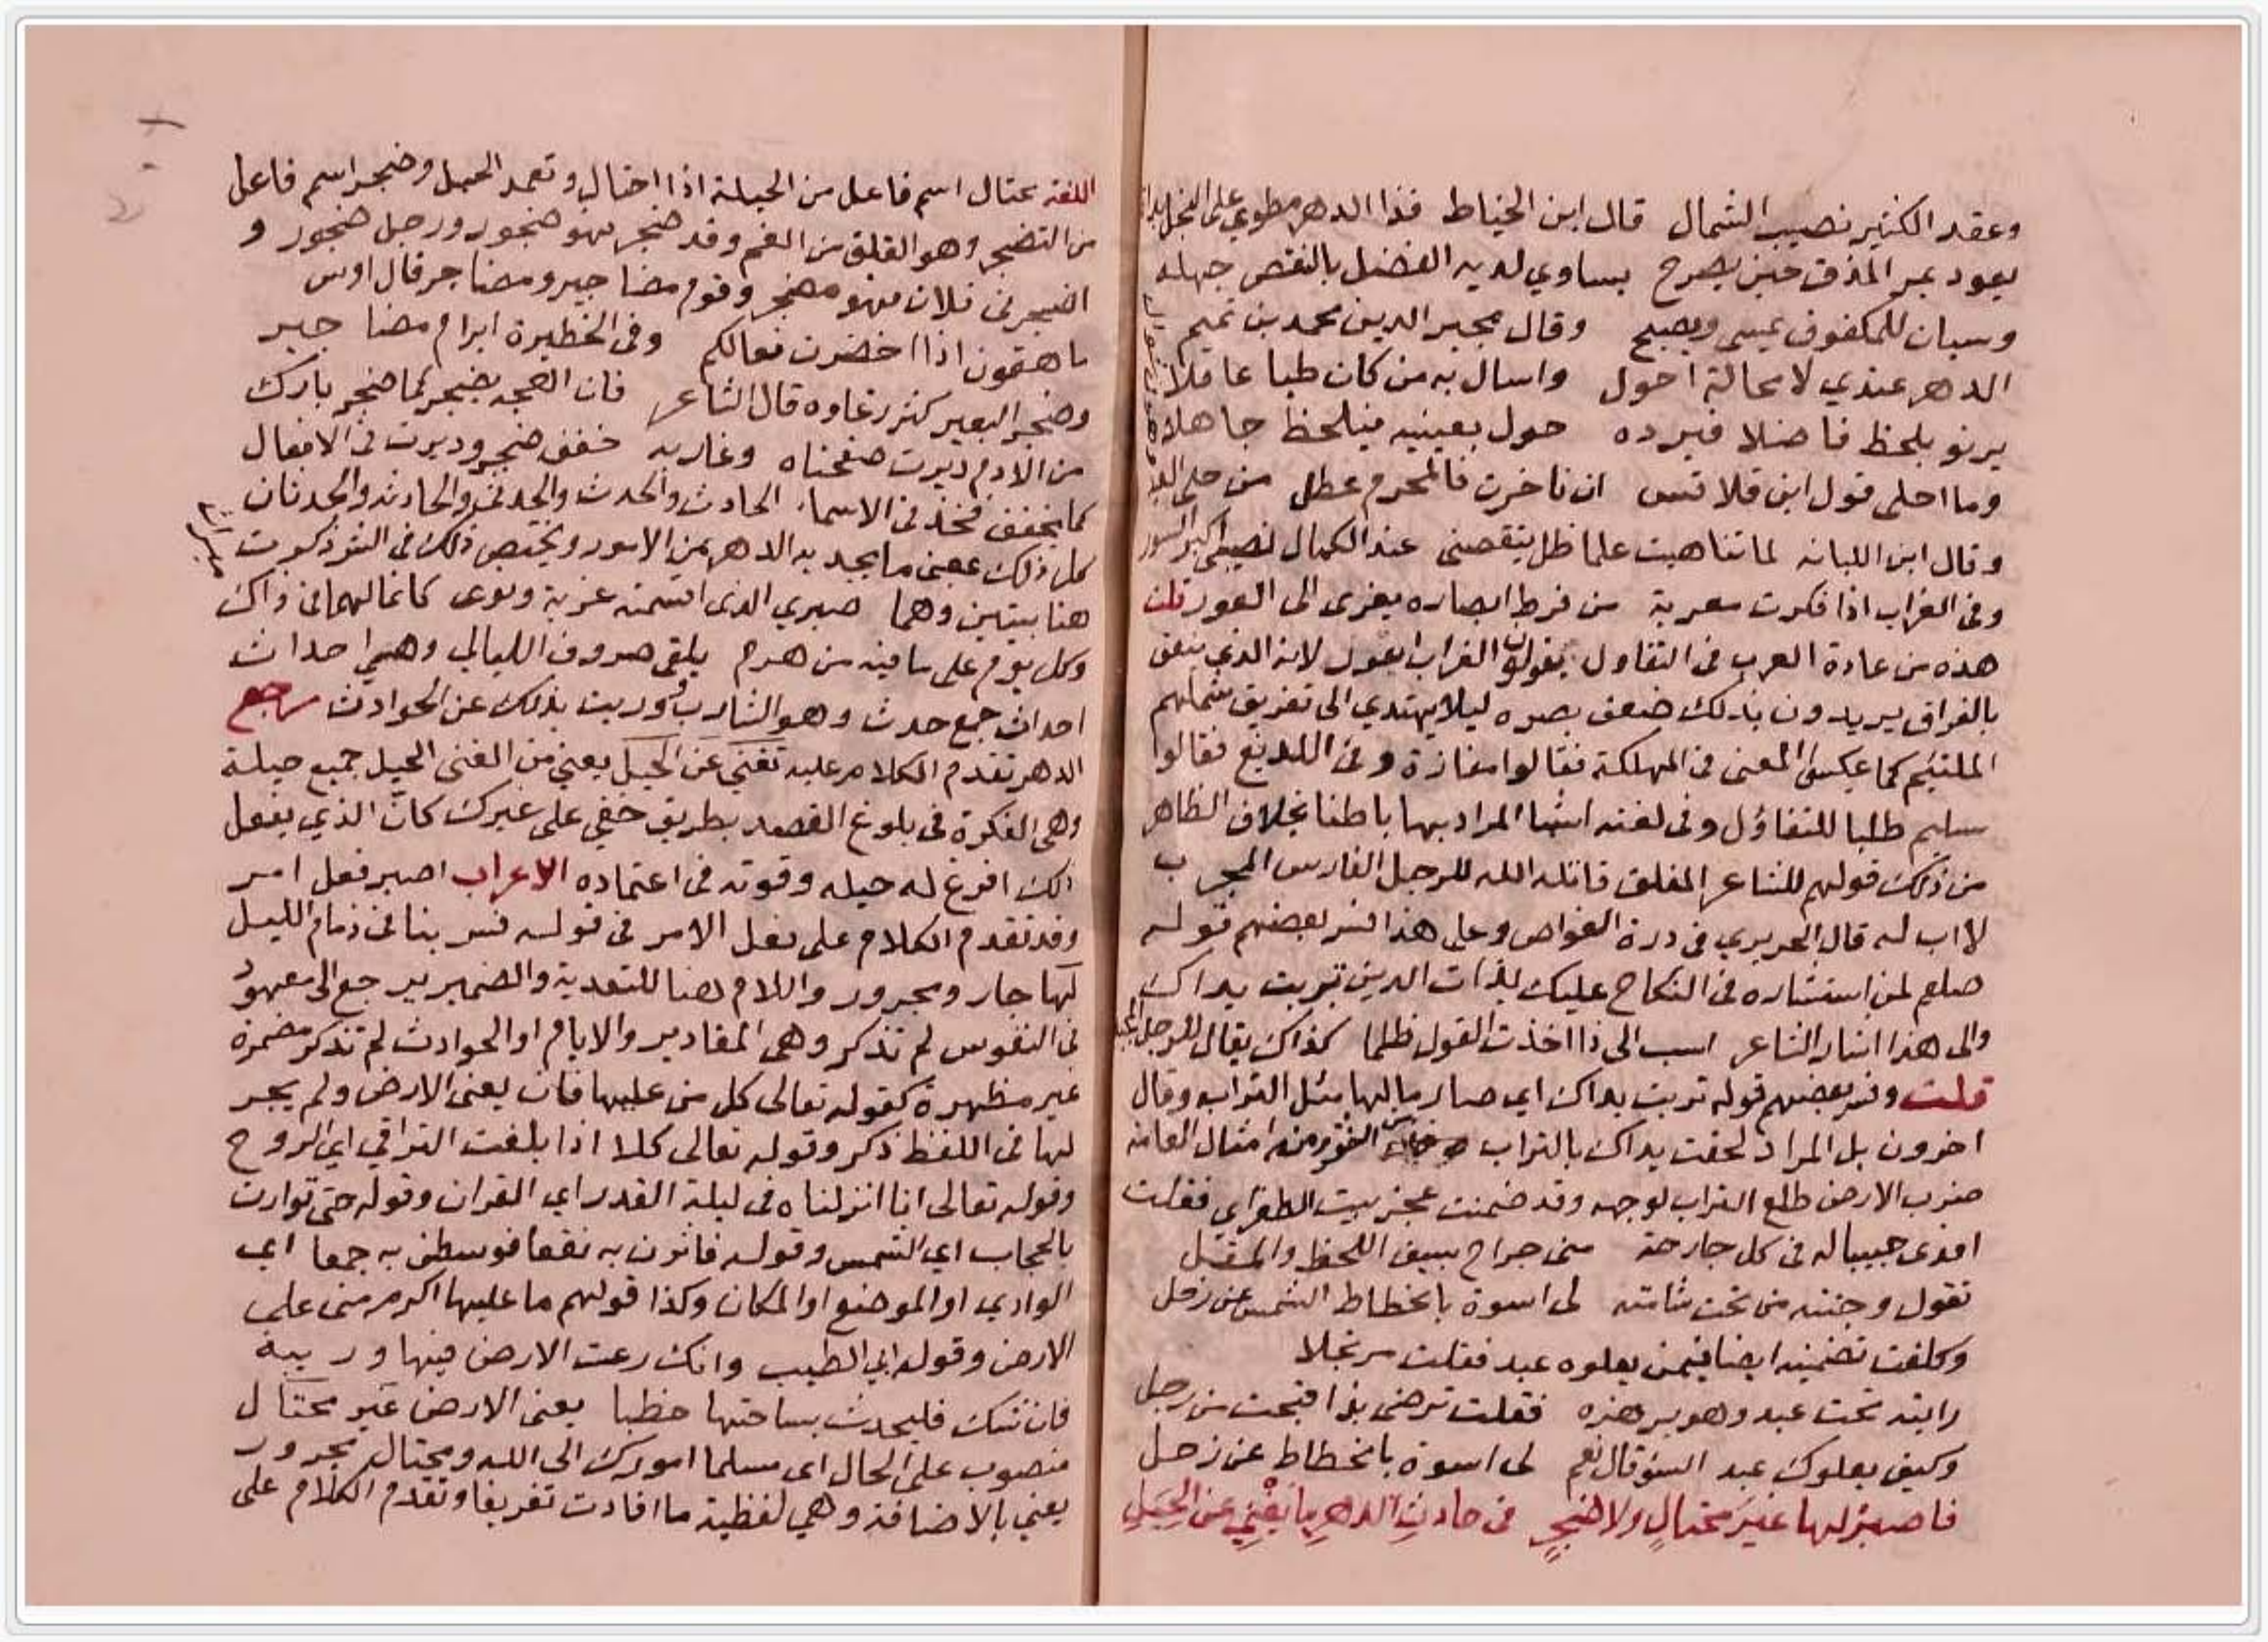 وعقد الكثير نصيب الشمال قال ابن الخياط فذا الدهر مطوي على البخل
يعود بمر المذق حين يصرح يساوي لديه الفضل بالنقص جهله
وسيان للمكفوف يمسي ويصبح وقال مجير الدين محمد بن تميم
الدهر عندي لا محالة احول واسال به من كان طبا عاقلا
يرنو بلحظ فاضلا فيرده حول بعينيه فيلحظ جاهلا
وما احلى قول ابن قلاقس ان تاخرت فالمحرم عطل من حلي
وقال ابن اللبانه لما تناهيت علما ظل ينقصني عند الكمال نصيبي
وفي الغراب اذا فكرت معربة من فرط ابصاره يعزى الى العور قلت
هذه من عادة العرب في التفاول يقولون الغراب اعور لانه الذي ينعق
بالفراق يريدون بذلك ضعف بصره ليلا يهتدي الى تفريق شملهم
الملتئم كما عكسوا المعنى في المهلكة فقالوا مفازة وفي اللديغ فقالوا
سليم طلبا للتفاؤل وفي لغته اشيا المراد بها باطنا بخلاف الظاهر
من ذلك قولهم للشاعر المفلق قاتله الله للرجل الفارس المجرب
لا اب له قال الحريري في درة الغواص وعلى هذا فسر بعضهم قوله
صلعم لمن استشاره في النكاح عليك بذات الدين تربت يداك
والى هذا اشار الشاعر اسب الى ذا اخذت القول ظلما كذاك يقال للرجل
قلت وفسر بعضهم قوله تربت يداك اي صار مالها مثل التراب وقال
اخرون بل المراد لحقت يداك بالتراب من الفقر ومن امثال العامه
ضرب الارض طلع التراب لوجهه وقد ضمنت عجز بيت الطغراي فقلت
افدى حبيبا له في كل جارحة منى جراح بسيف اللحظ والمقل
تقول وجنته من تحت شامته لى اسوة بانحطاط الشمس عن زحل
وكلفت تضمينه ايضا فيمن يعلوه عبد فقلت مرتجلا
رايته تحت عبد وهو يرهزه فقلت ترضى بذا قبحت من رجل
وكيف يعلوك عبد السؤ قال نعم لى اسوة بانحطاط عن زحل
فاصبر لها غير محتال ولا ضجر في حادث الدهر ما يغني عن الحيل
اللغة محتال اسم فاعل من الحيلة اذا احتال وتعمد الحيل وضجر اسم فاعل
من التضجر وهو القلق من الغم وقد ضجر فهو ضجور ورجل ضجور و
اضجرني فلان فهو مضجر وقوم مضاجير ومضاجر قال اوس
ما هقون اذا اخضرت نعالكم وفي الحظيرة ابرام مضاجير
وضجر البعير كثر رغاوه قال الشاعر فان اهجه يضجر كما ضجر بازك
من الادم دبرت صفحتاه وغاربه خفف ضجر ودبرت في الافعال
كما يخفف فخذ في الاسماء الحادث والحدث والحدثى والحادثه والحدثان
كل ذلك بمعنى ما يجد به الدهر من الامور ويختص ذلك في الشر ذكرت
هنا بيتين وهما صبري الذى اقسمته غربة ونوى كانما لهما في ذاك
وكل يوم على ما فيه من هرم يلقى صروف الليالي وهي احداث
احداث جمع حدث وهو الشارب وريت بذلك عن الحوادث رجع
الدهر تقدم الكلام عليه تغني عن الحيل يعني من الغنى الحيل جميع حيلة
وهي الفكرة في بلوغ القصد بطريق خفي على غيرك كان الذي يفعل
لك افرغ له حيله وقوته في اعتماده الاعراب اصبر فعل امر
وقد تقدم الكلام على فعل الامر في قوله فسر بنا في ذمام الليل
لها جار ومجرور واللام هنا للتعدية والضمير يرجع الى معهود
في النفوس لم تذكر وهى المقادير والايام او الحوادث لم تذكر مضمرة
غير مظهرة كقوله تعالى كل من عليها فان يعنى الارض ولم يجر
لها في اللفظ ذكر وقوله تعالى كلا اذا بلغت التراقي اي الروح
وقوله تعالى انا انزلناه في ليلة القدر اي القران وقوله حتى توارت
بالحجاب اي الشمس وقوله فاثرن به نقعا فوسطن به جمعا اي
الوادي او الموضع او المكان وكذا قولهم ما عليها اكرم منى على
الارض وقول ابي الطيب وانك رعت الارض فيها وريبة
فان شك فليحدث بساحتها خطبا يعنى الارض غير محتال
منصوب على الحال اى مسلما امورك الى الله ومحتال مجرور
يعني بالاضافة وهي لفظية ما افادت تعريفا وتقدم الكلام على